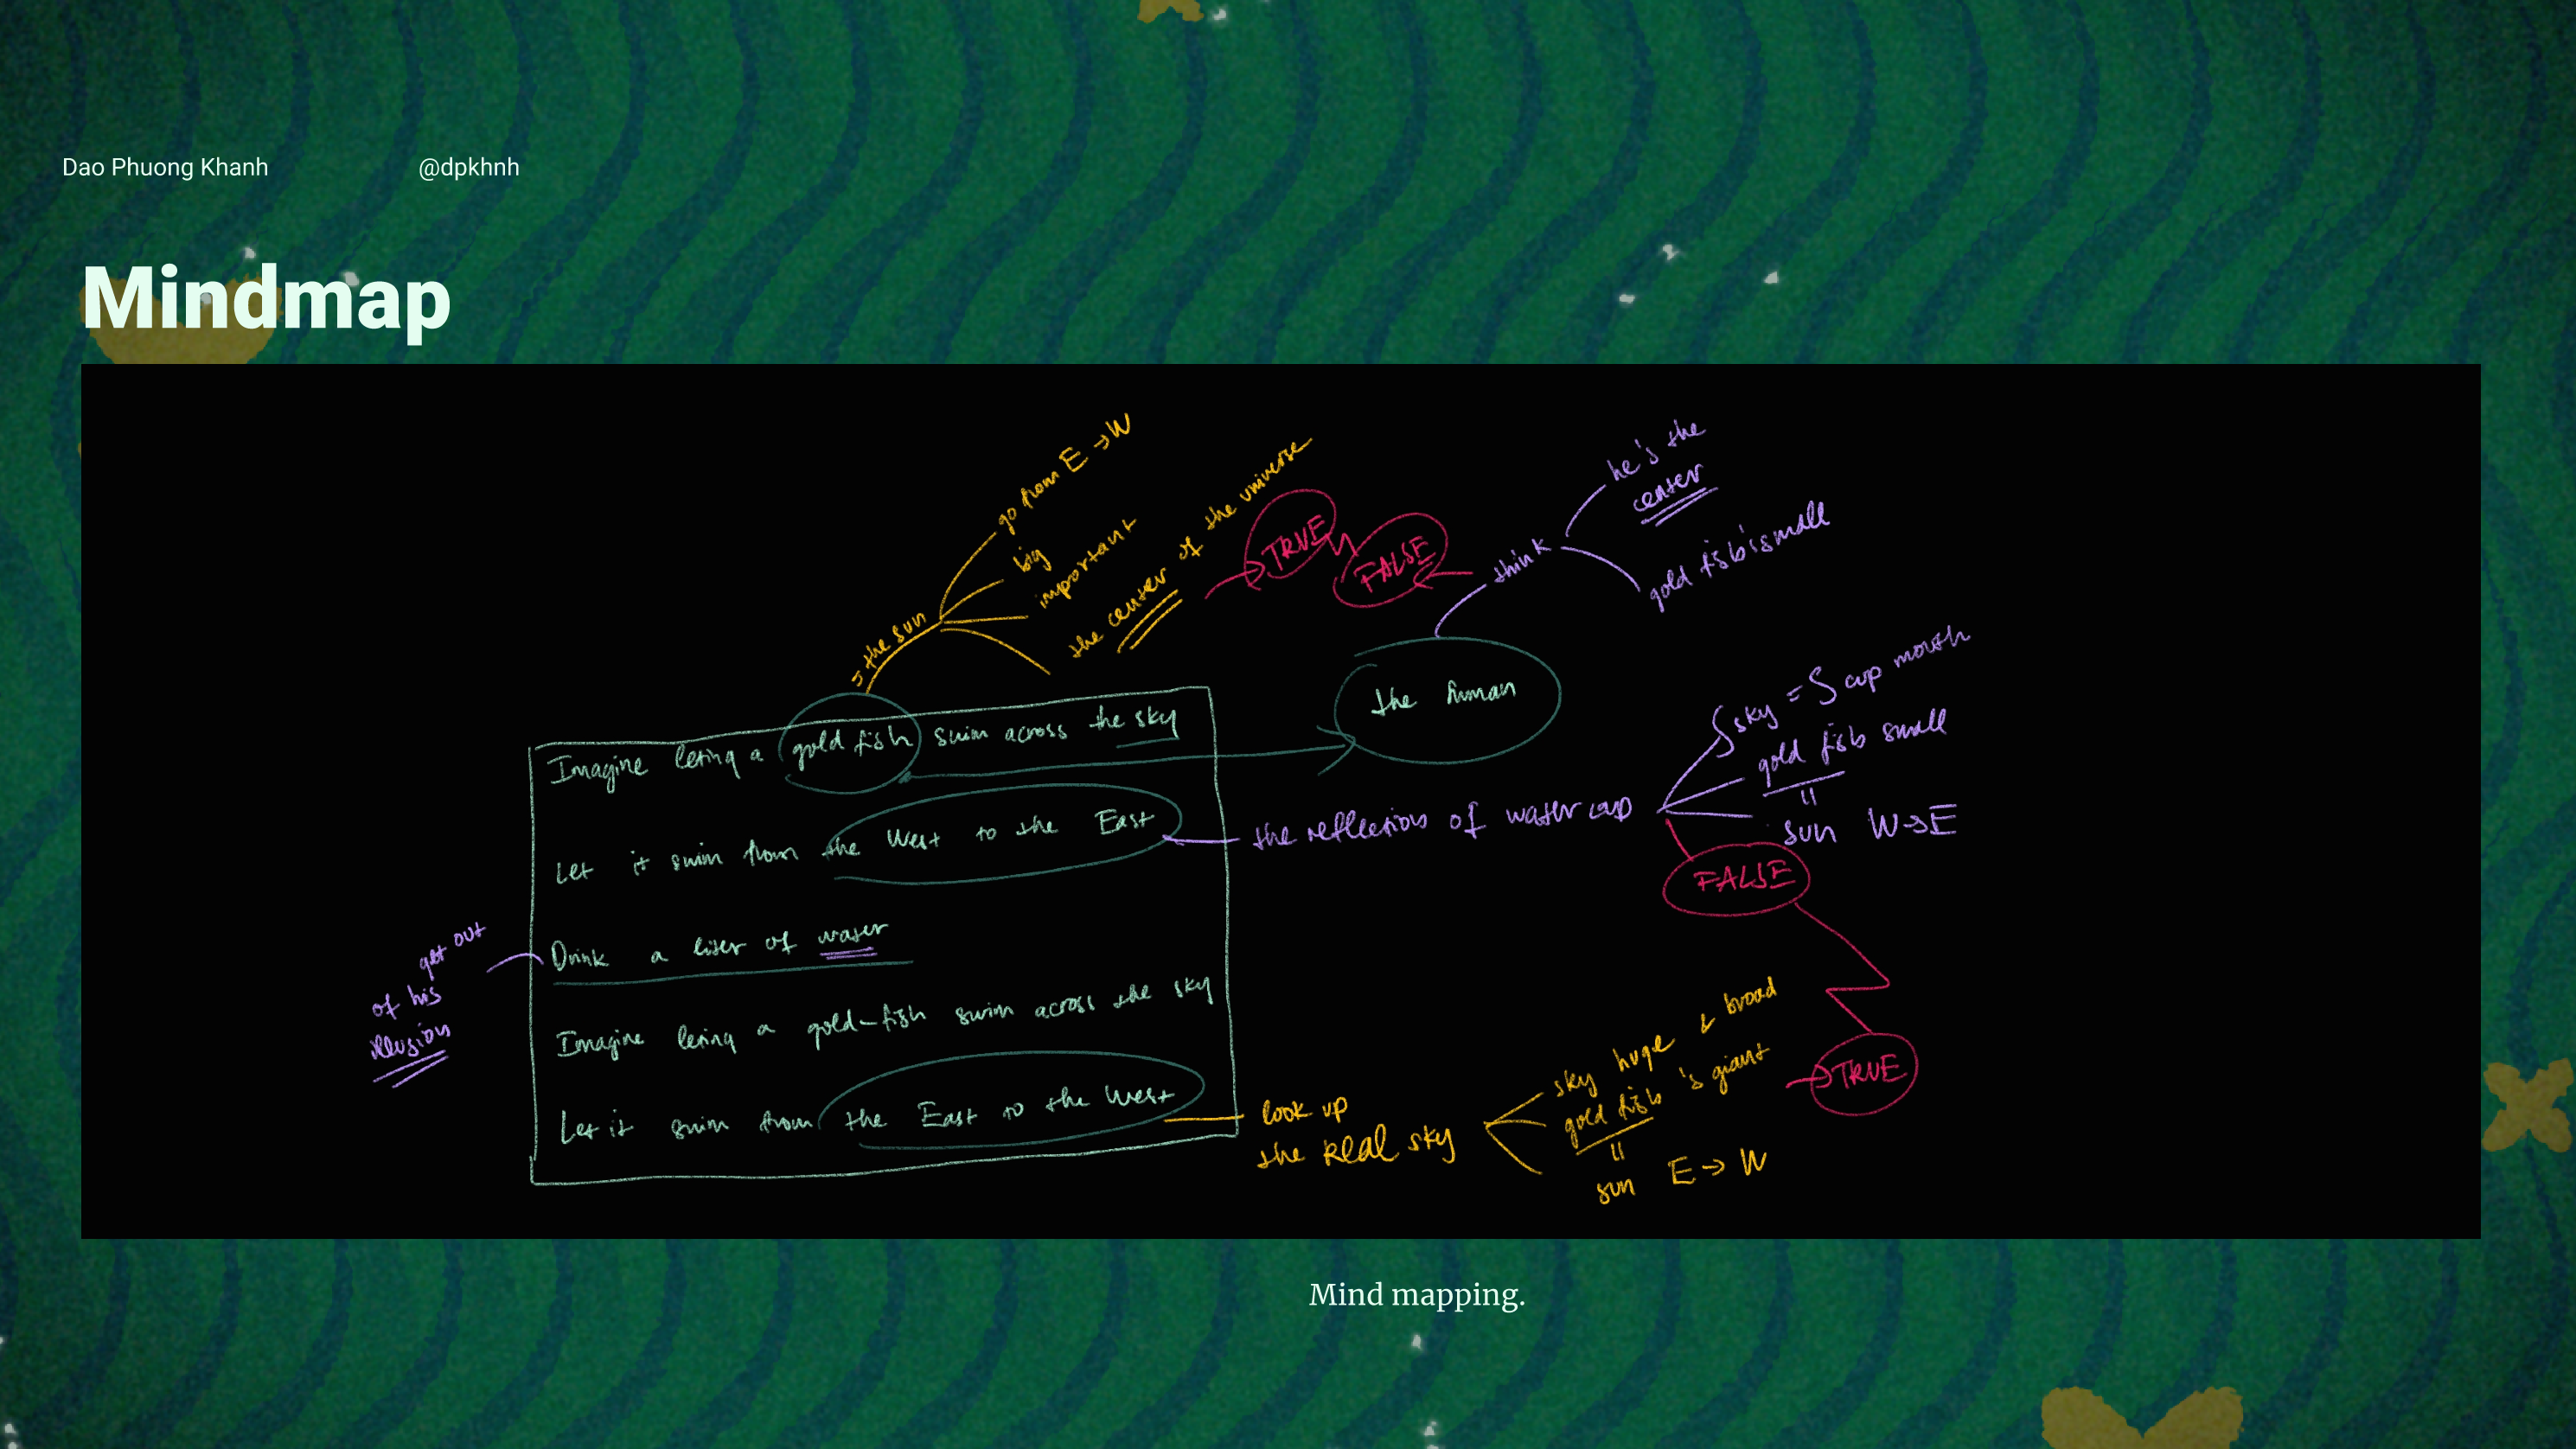 Dao Phuong Khanh @dpkhnh
Mindmap
go from E → W
big
important
the center of the universe
= the sun
TRUE
FALSE
think
he's the
center
gold fish is small
the human
Imagine leting a gold fish swim across the sky
Let it swim from the West to the East
Drink a liter of water
Imagine leting a gold-fish swim across the sky
Let it swim from the East to the West
get out
of his
illusion
the reflection of water cup
S sky = S cup mouth
gold fish small
=
sun W → E
FALSE
TRUE
look up
the real sky
sky huge & broad
gold fish 's giant
=
sun E → W
Mind mapping.